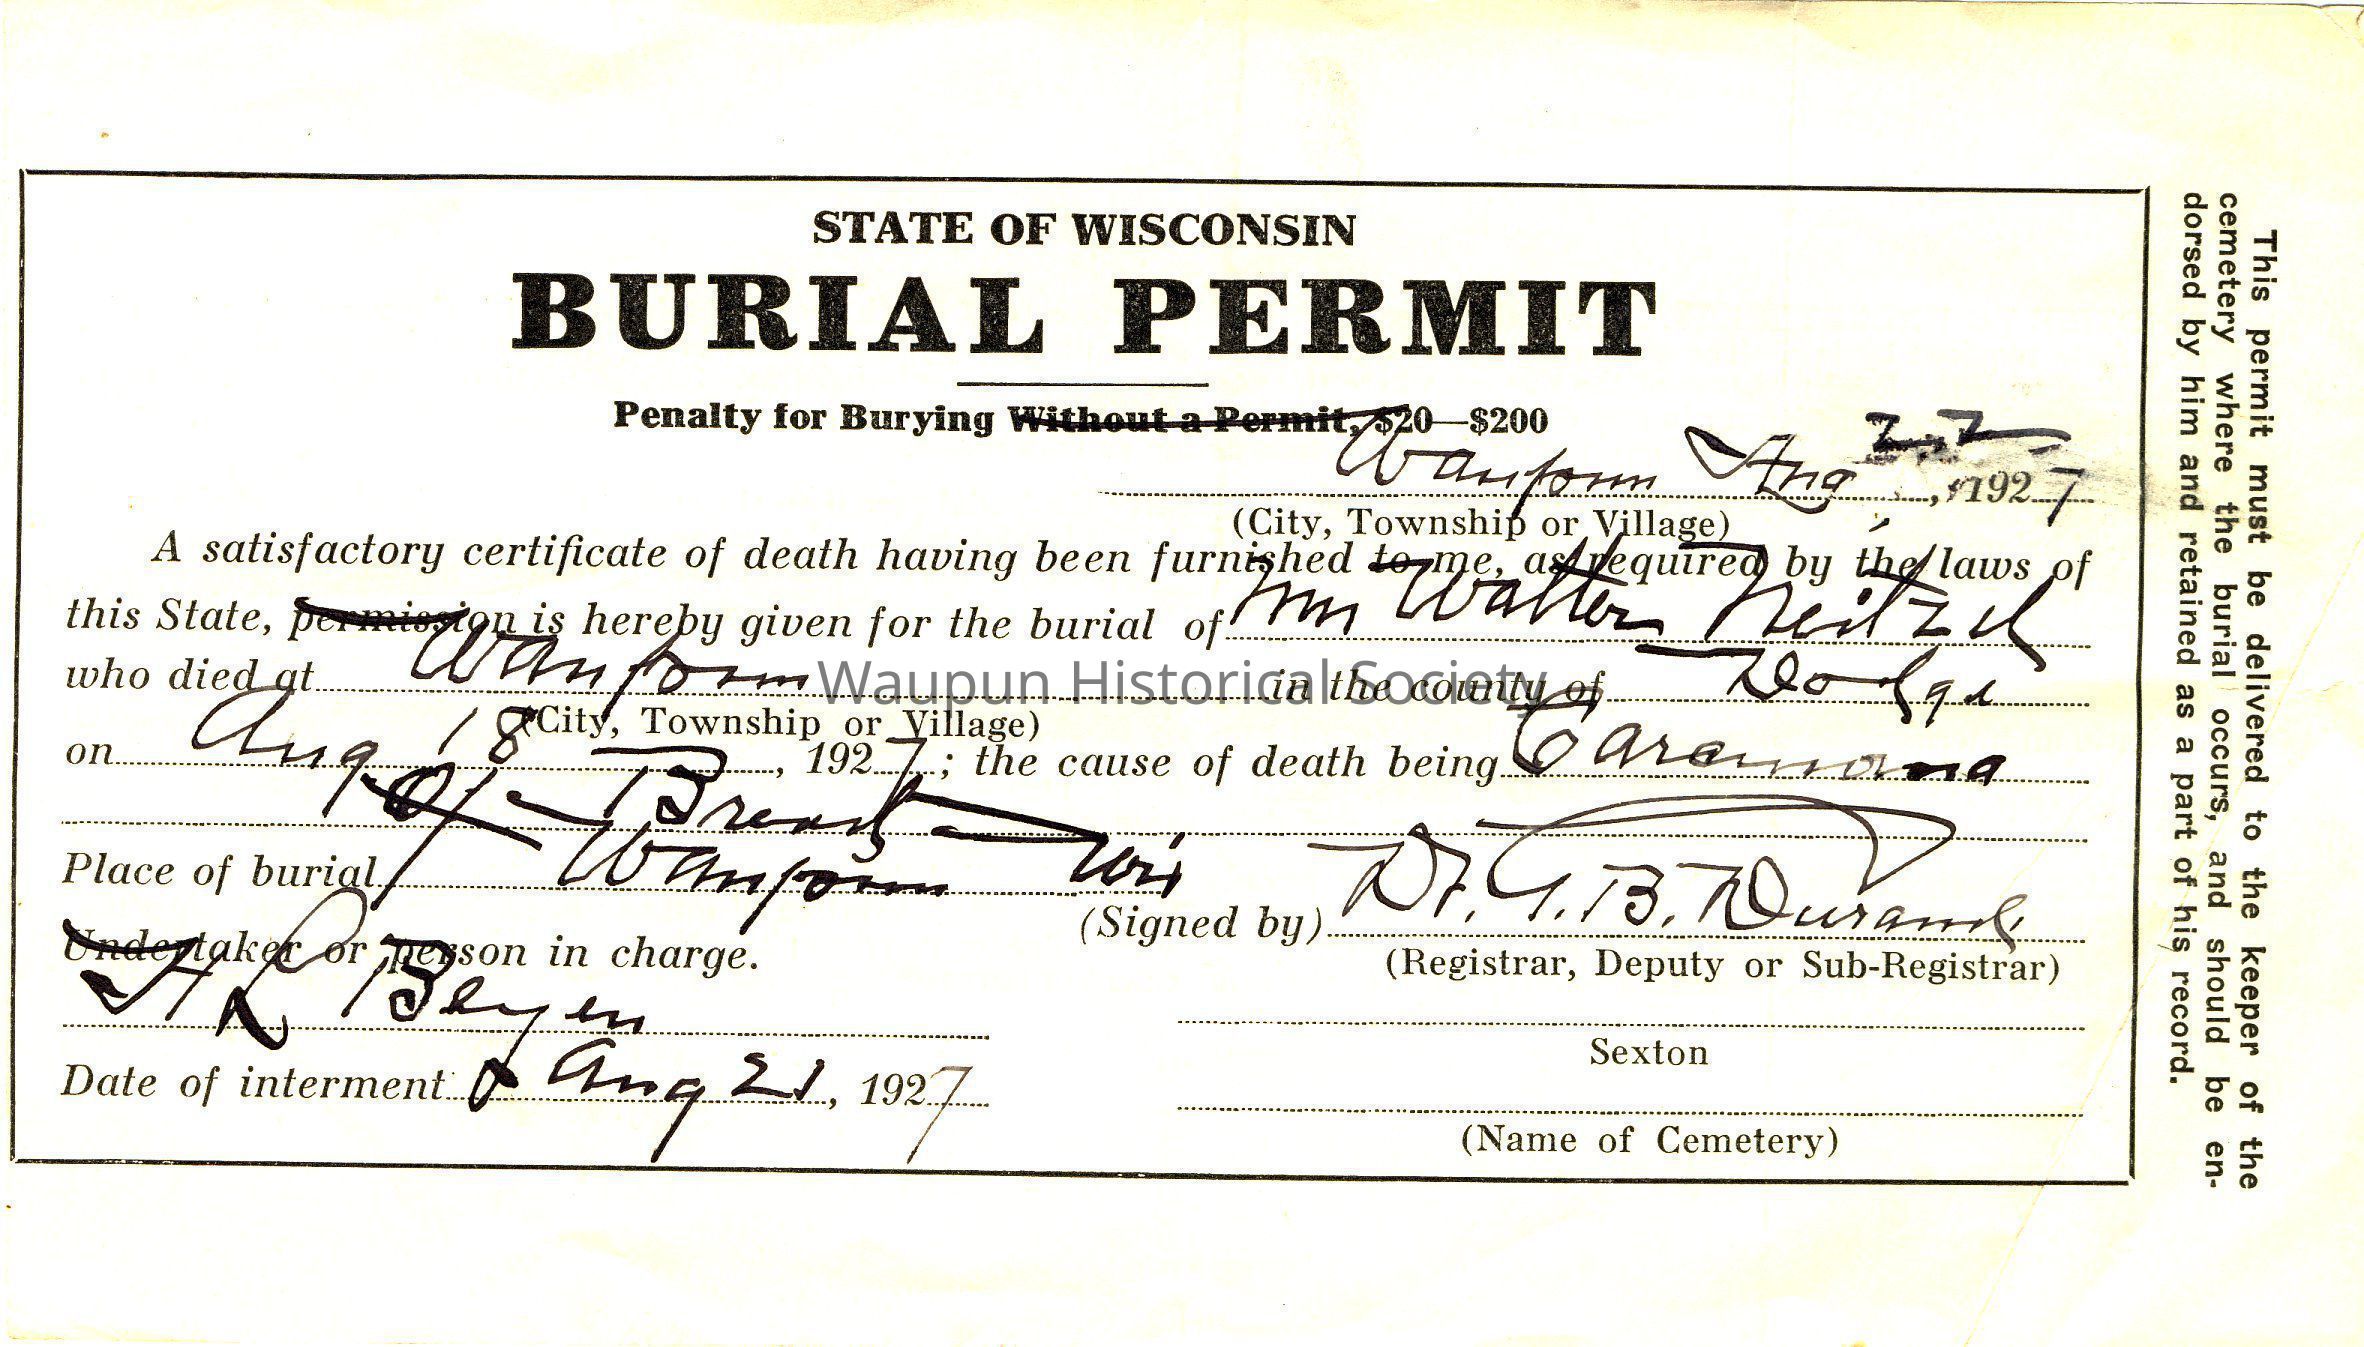 STATE OF WISCONSIN
BURIAL PERMIT
Penalty for Burying Without a Permit, $20—$200
Waupun Aug 22, 1927
(City, Township or Village)
A satisfactory certificate of death having been furnished to me, as required by the laws of
this State, permission is hereby given for the burial of Mrs Walter Neitzel
who died at Waupun in the county of Dodge
(City, Township or Village)
on Aug 18, 1927; the cause of death being
of Breast
Place of burial Waupun Wis
(Signed by) Dr. G. B. Durand
(Registrar, Deputy or Sub-Registrar)
Undertaker or person in charge.
H L Beyer
Sexton
Date of interment Aug 21, 1927
(Name of Cemetery)
This permit must be delivered to the keeper of the
cemetery where the burial occurs, and should be en-
dorsed by him and retained as a part of his record.
Waupun Historical Society